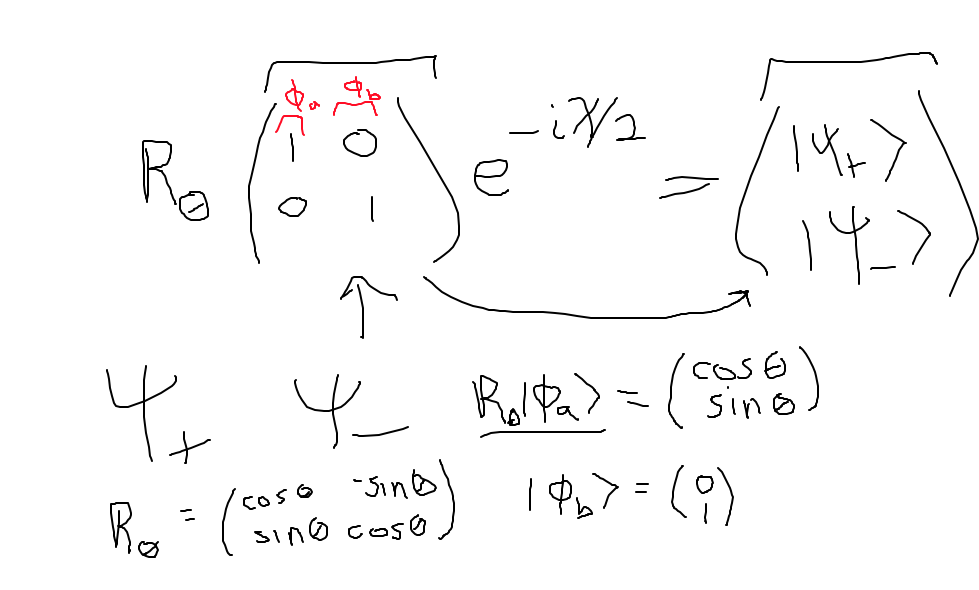 ϕₐ ϕ_b
R_θ (1 0
0 1) e^{-iχ/2} = (|ψ₊⟩
|ψ₋⟩)
ψ₊ ψ₋
R_θ|ϕₐ⟩ = (cosθ
sinθ)
R_θ = (cosθ -sinθ
sinθ cosθ)
|ϕ_b⟩ = (0
1)